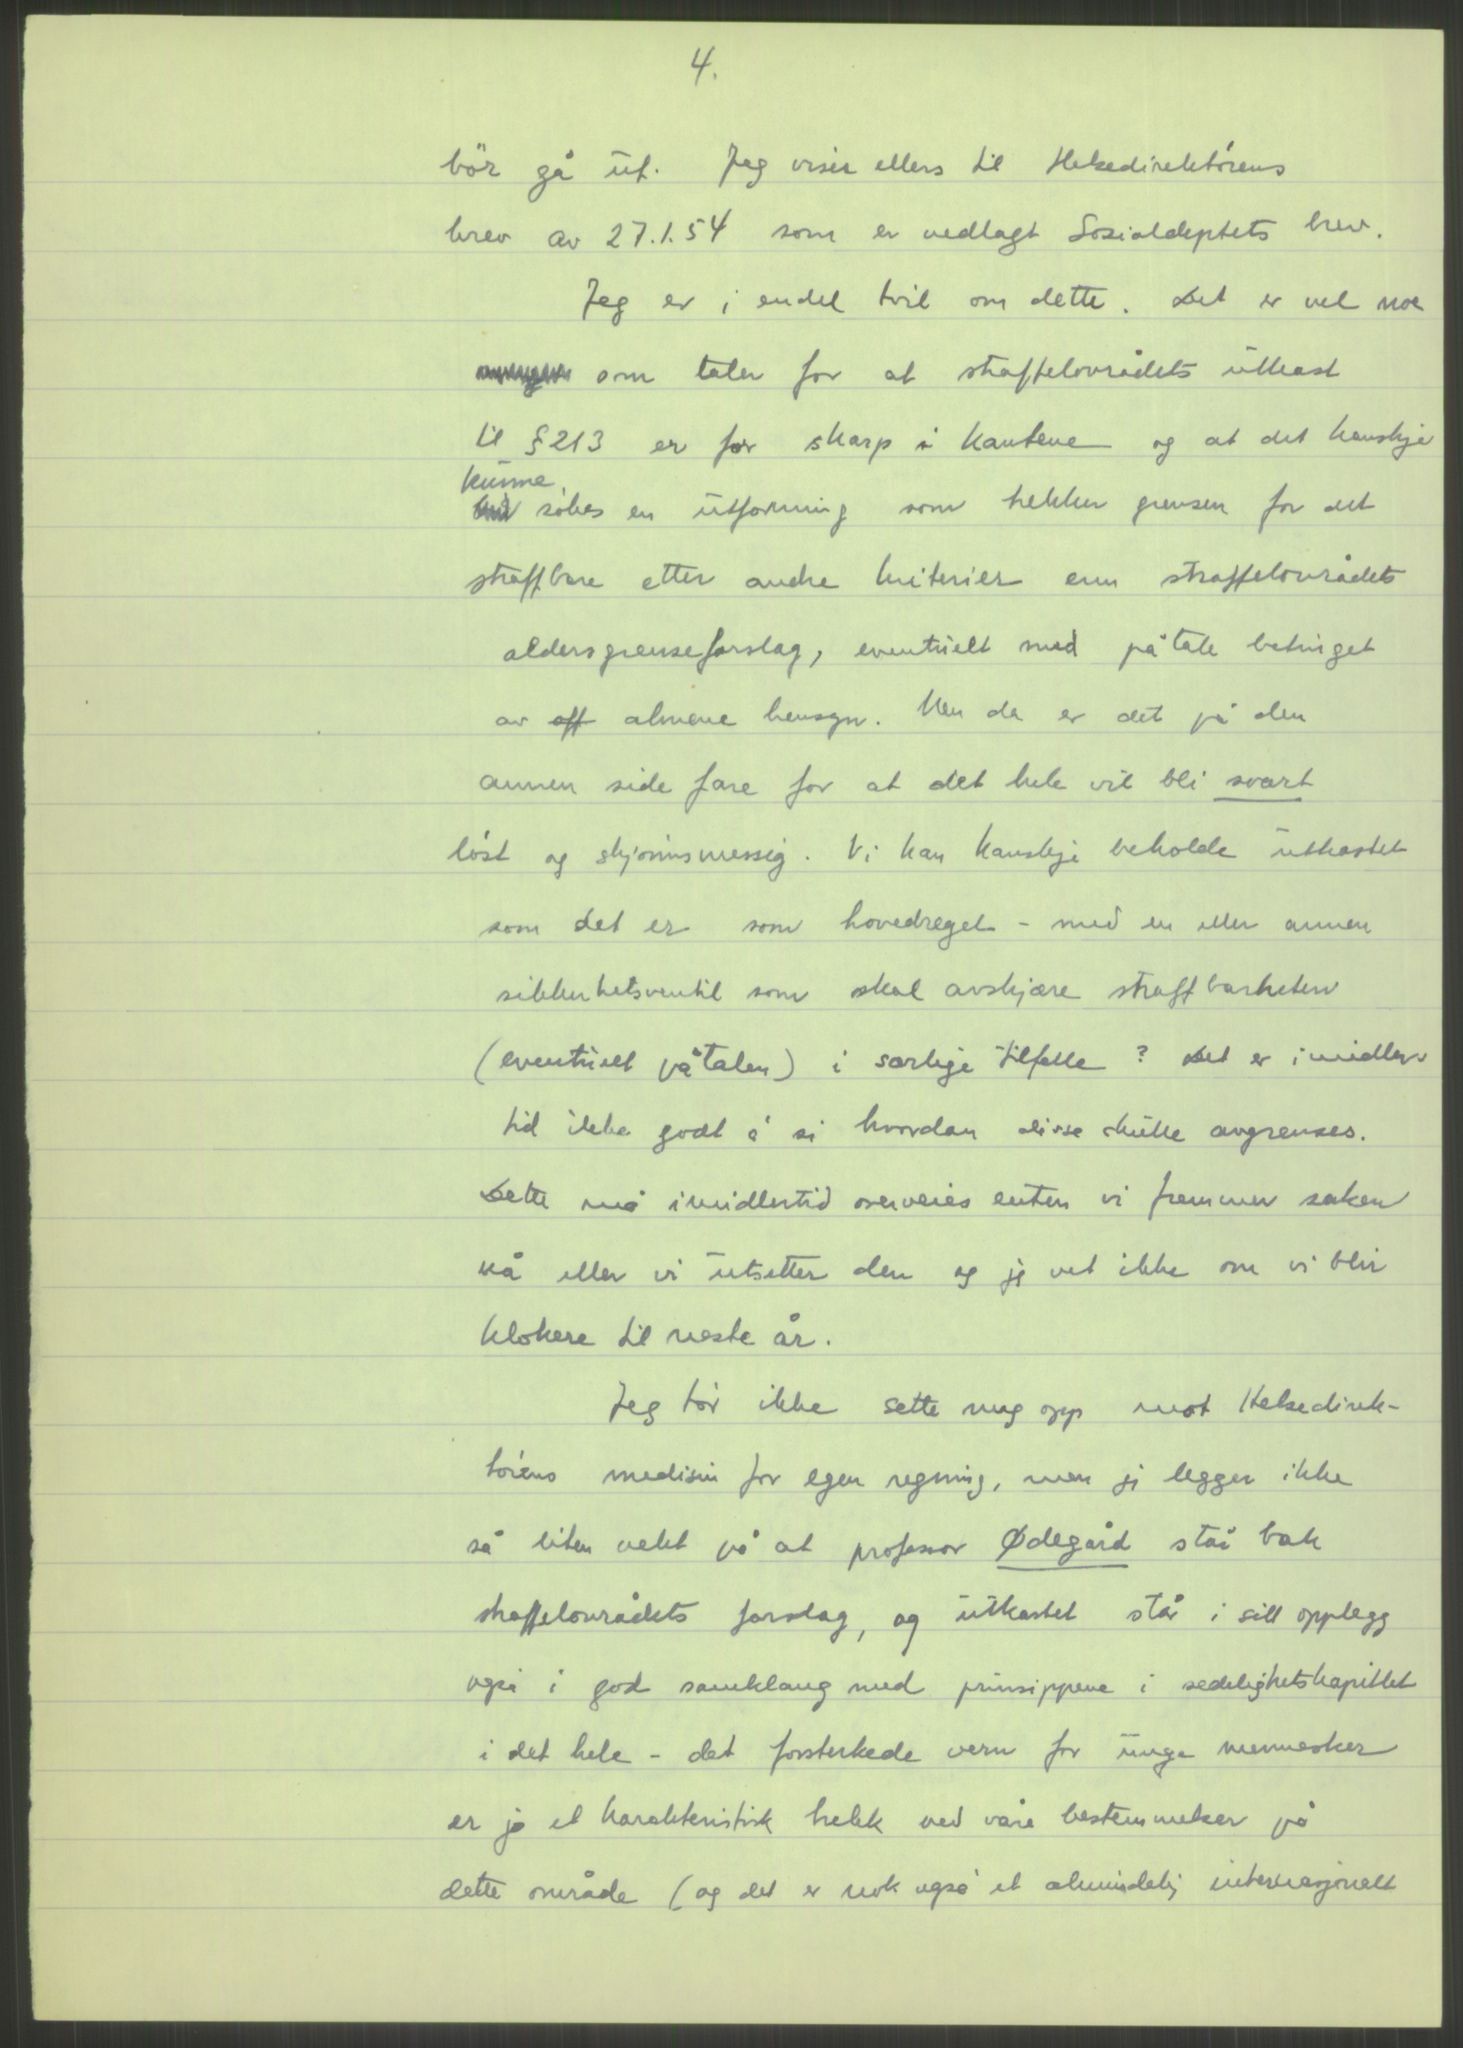 4.
bör gå ut. Jeg viser ellers til Helsedirektørens
brev av 27.1.54 som er vedlagt Sosialdeptets brev.
Jeg er i endel tvil om dette. Det er vel noe
som taler for at straffelovrådets utkast
til § 213 er for skarp i kantene og at det kanskje
kunne
søkes en utforming som trekker grensen for det
straffbare etter andre kriterier enn straffelovrådets
aldersgrenseforslag, eventuelt med påtale betinget
av off almene hensyn. Men da er det på den
annen side fare for at det hele vil bli svært
løst og skjønnsmessig. Vi kan kanskje beholde utkastet
som det er som hovedregel - med en eller annen
sikkerhetsventil som skal avskjære straffbarheten
(eventuelt påtalen) i særlige tilfelle? Det er imidler-
tid ikke godt å si hvordan disse skulle avgrenses.
Dette må imidlertid overveies enten vi fremmer saken
nå eller vi utsetter den og jeg vet ikke om vi blir
klokere til neste år.
Jeg tør ikke sette meg opp mot Helsedirek-
tørens medisin for egen regning, men jeg legger ikke
så liten vekt på at professor Ødegård står bak
straffelovrådets forslag, og utkastet står i sitt opplegg
også i god samklang med prinsippene i sedelighetskapitlet
i det hele - det forsterkede vern for unge mennesker
er jo et karakteristisk trekk ved våre bestemmelser på
dette område (og det er nok også et alminnelig internasjonalt